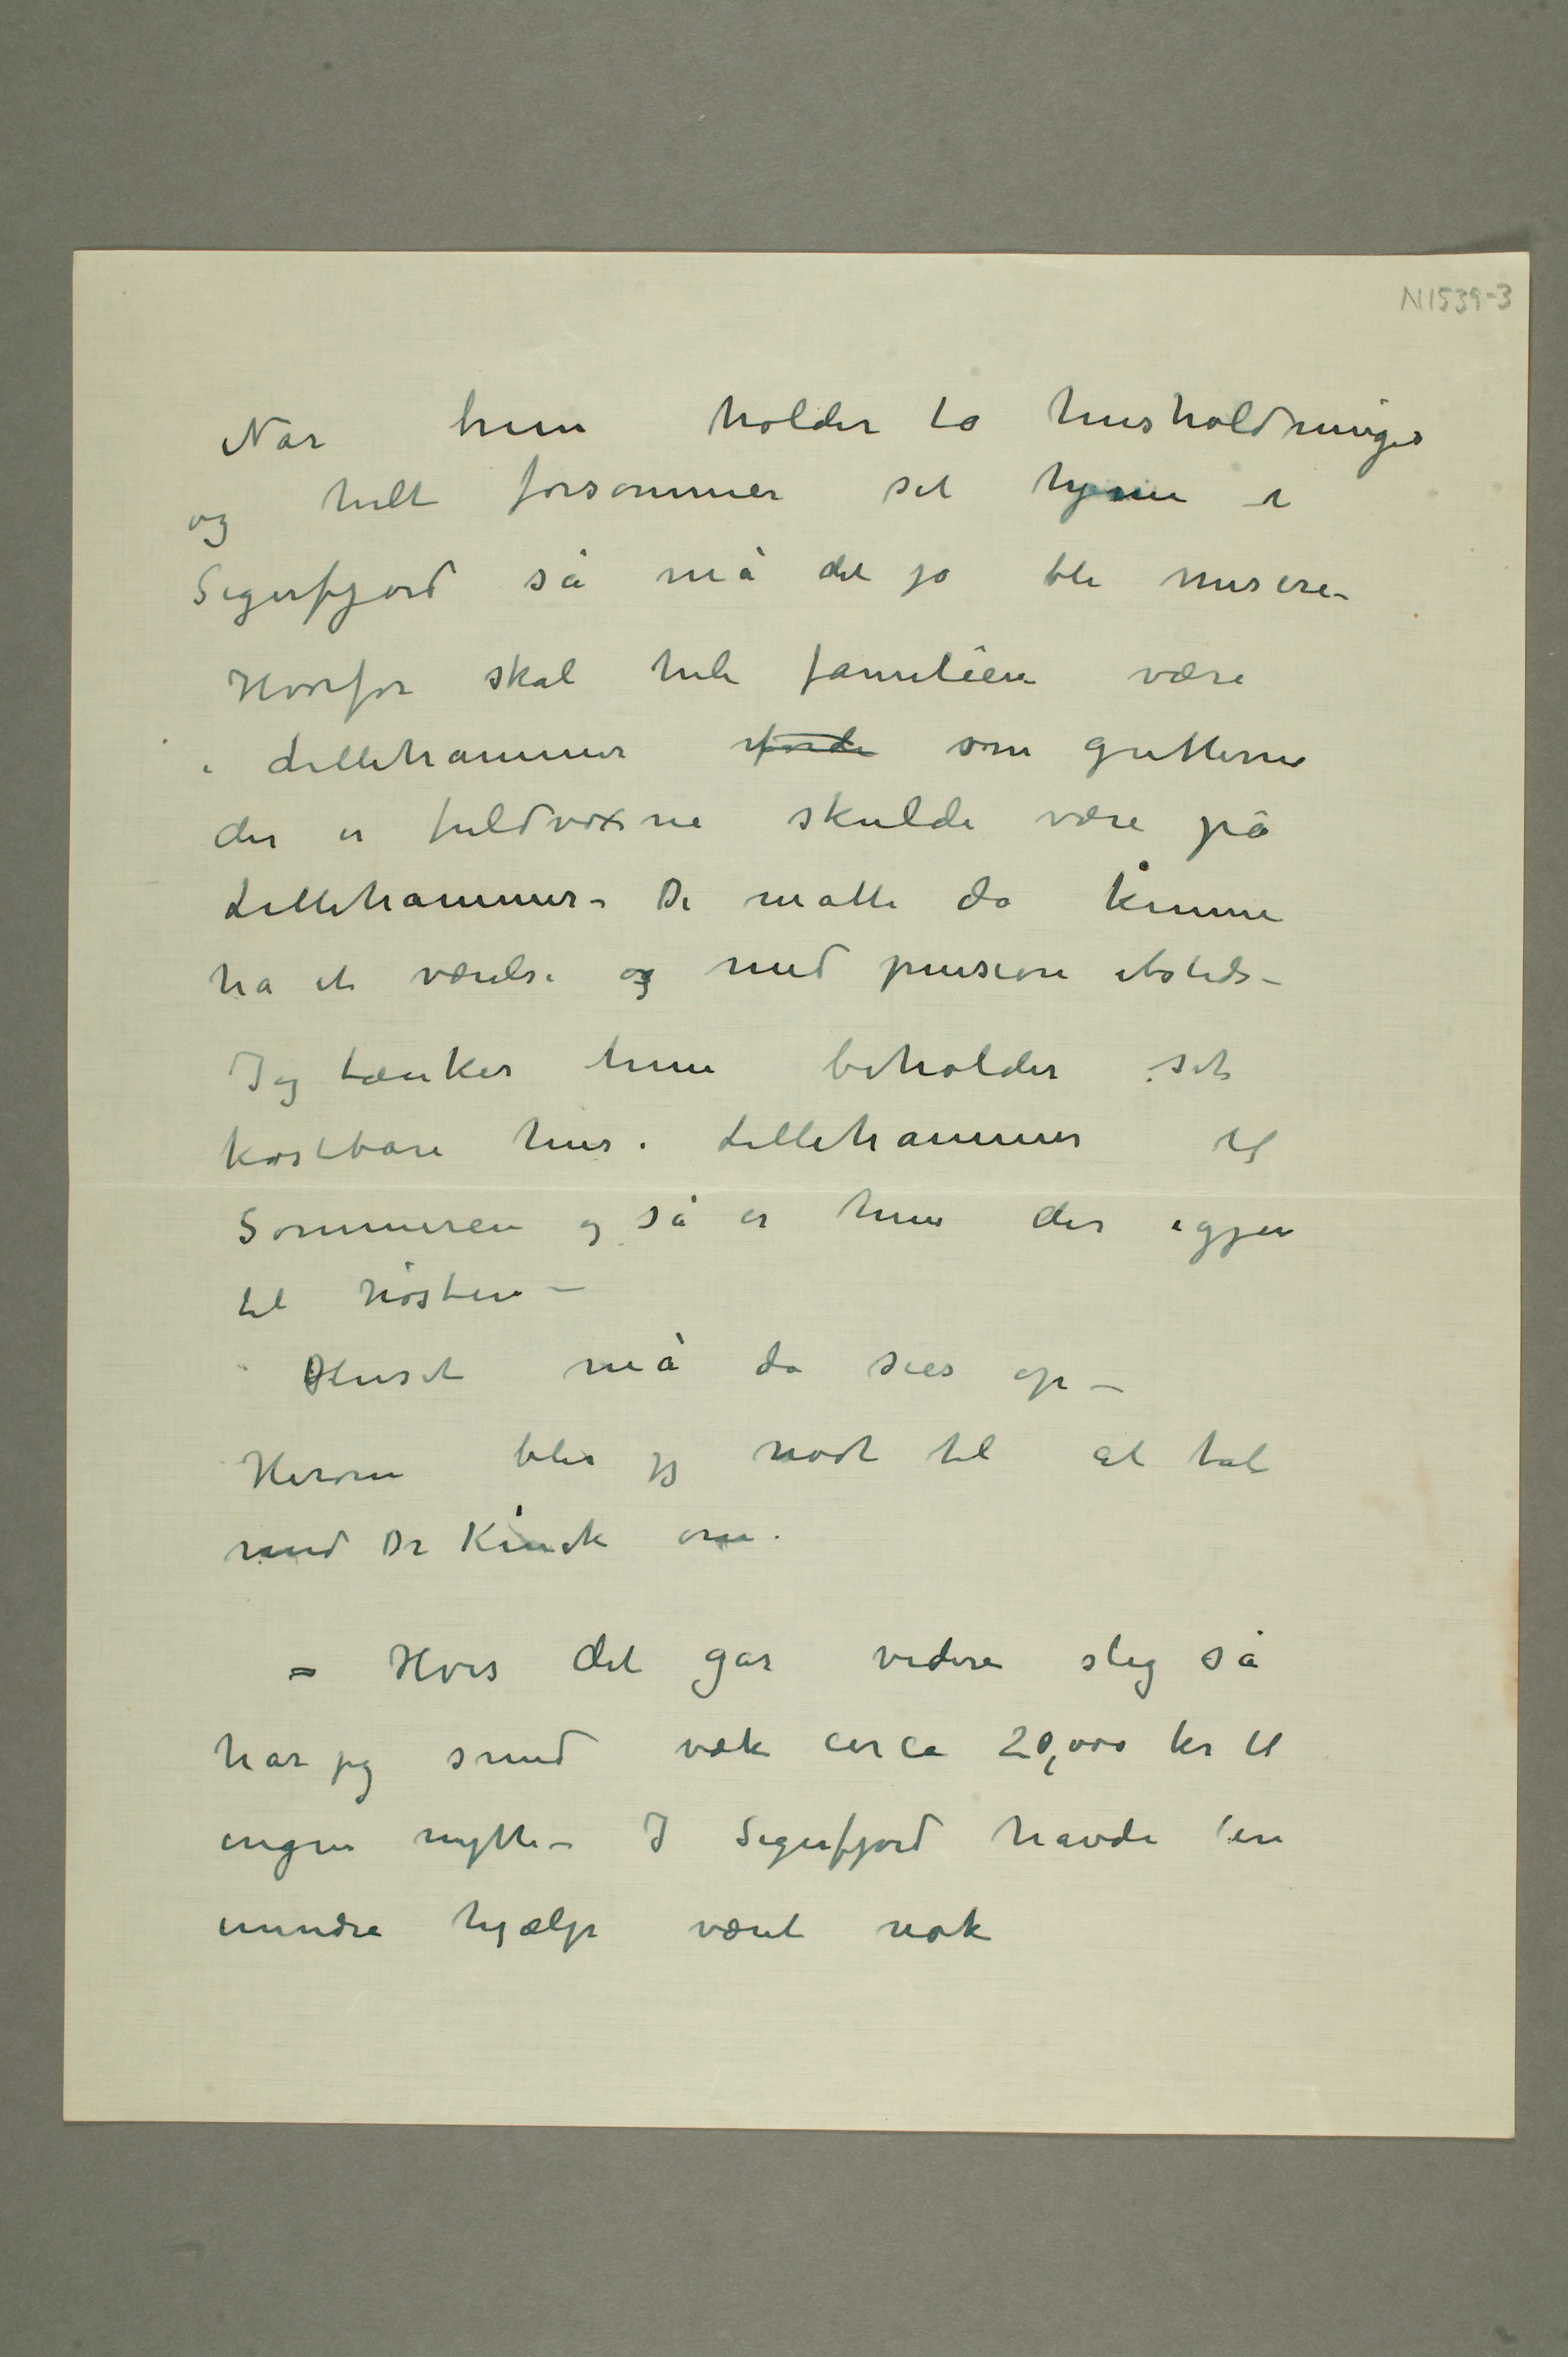 N1539-3
Når hun holder to husholdninger
og helt forsømmer sit hjem i
Sigerfjord så må det jo bli misere–
Hvorfor skal hele familien være
i Lillehammer som gutterne
der er fuldvoxne skulde være på
Lillehammer– De måtte da kunne
ha et værelse og med pension etsteds–
Jeg tænker hun beholder sit
kostbare hus i Lillehammer til
Sommeren og så er hun der igjen
til høsten –
Huset må da sies op –
Herom blir jeg nødt til at tale
med Dr Kinck om.
– Hvis det går videre slig så
har jeg smid væk circa 20,000 kr til
ingen nytte– I Sigerfjord havde en
mindre hjælp været nok